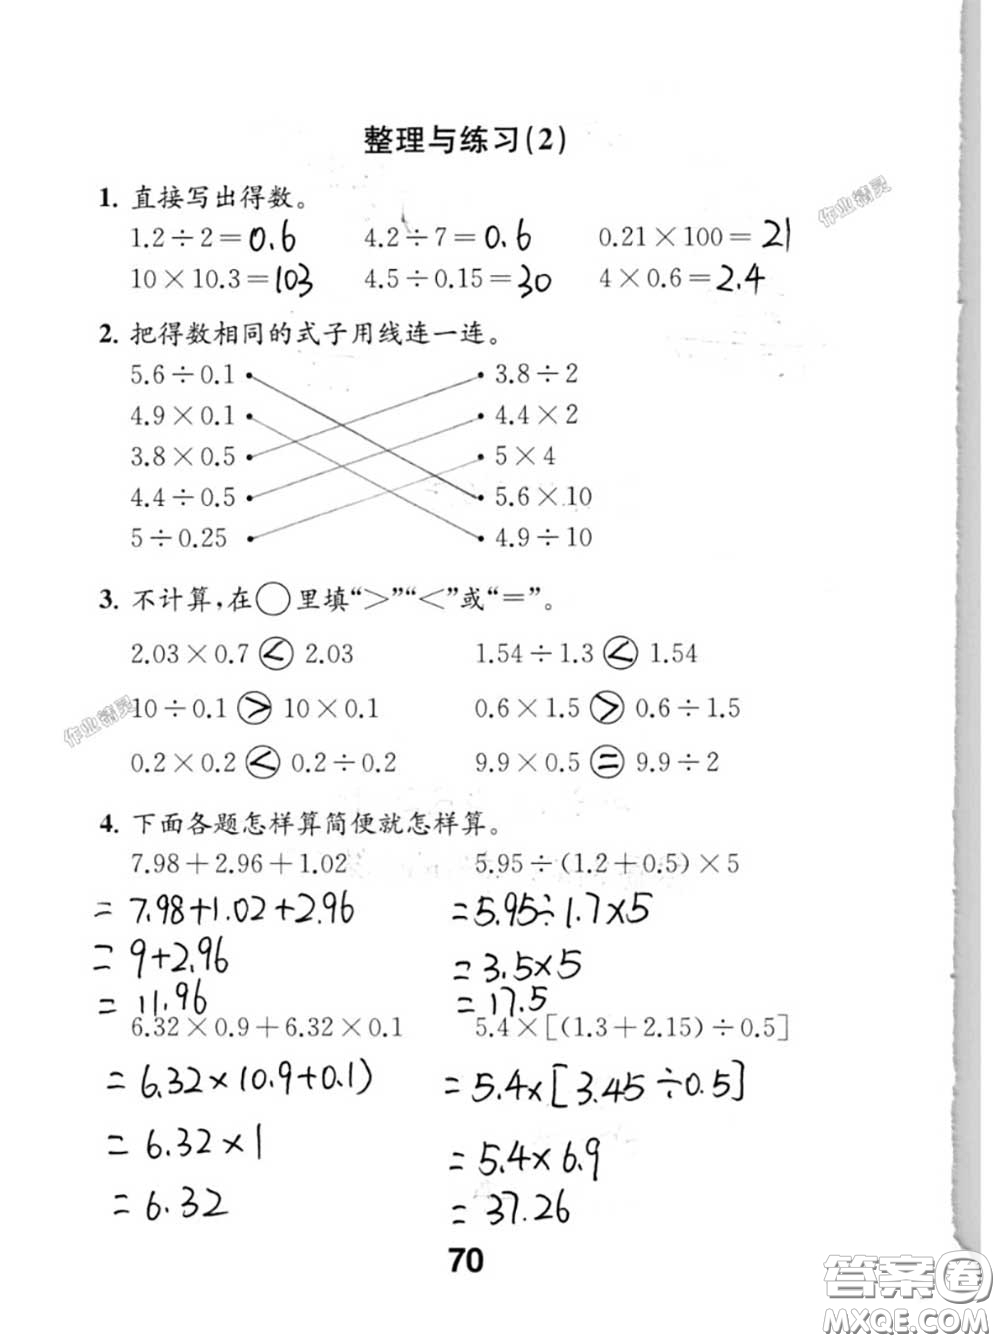 整理与练习(2)
1. 直接写出得数。
1.2÷2=0.6 4.2÷7=0.6 0.21×100=21
10×10.3=103 4.5÷0.15=30 4×0.6=2.4
作业精灵
2. 把得数相同的式子用线连一连。
5.6÷0.1 3.8÷2
4.9×0.1 4.4×2
3.8×0.5 5×4
4.4÷0.5 5.6×10
5÷0.25 4.9÷10
3. 不计算,在○里填“>”“<”或“=”。
2.03×0.7<2.03 1.54÷1.3<1.54
10÷0.1>10×0.1 0.6×1.5>0.6÷1.5
作业精灵
0.2×0.2<0.2÷0.2 9.9×0.5=9.9÷2
4. 下面各题怎样算简便就怎样算。
7.98+2.96+1.02 5.95÷(1.2+0.5)×5
=7.98+1.02+2.96 =5.95÷1.7×5
=9+2.96 =3.5×5
=11.96 =17.5
6.32×0.9+6.32×0.1 5.4×[(1.3+2.15)÷0.5]
=6.32×(0.9+0.1) =5.4×[3.45÷0.5]
=6.32×1 =5.4×6.9
=6.32 =37.26
70
答案卷
MXQE.COM